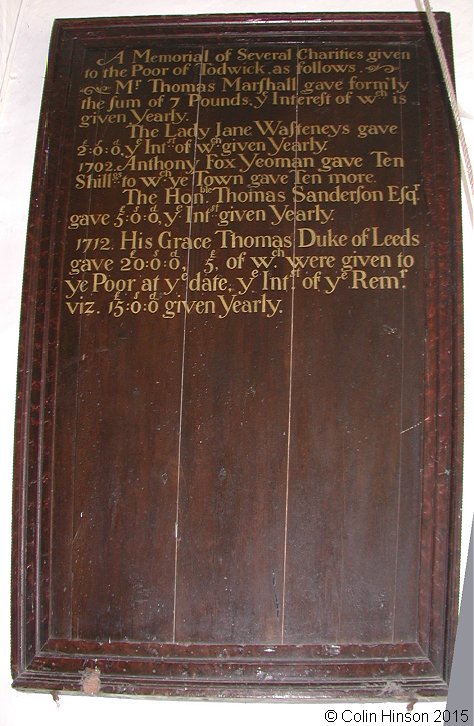 A Memorial of Several Charities given
to the Poor of Todwick, as follows.
Mr Thomas Marſhall gave form'ly
the ſum of 7 Pounds, ye Intereſt of wch is
given Yearly.
The Lady Jane Waſteneys gave
2:0:0, ye Intst of wch given Yearly.
1702. Anthony Fox Yeoman gave Ten
Shillgs to wch ye Town gave Ten more.
The Honble Thomas Sanderſon Eſqr
gave £5:s0:d0, ye Intst given Yearly.
1712. His Grace Thomas Duke of Leeds
gave £20:s0:d0, £5, of wch were given to
ye Poor at ye date, ye Intst of ye Remr.
viz. £15:s0:d0 given Yearly.
© Colin Hinson 2015